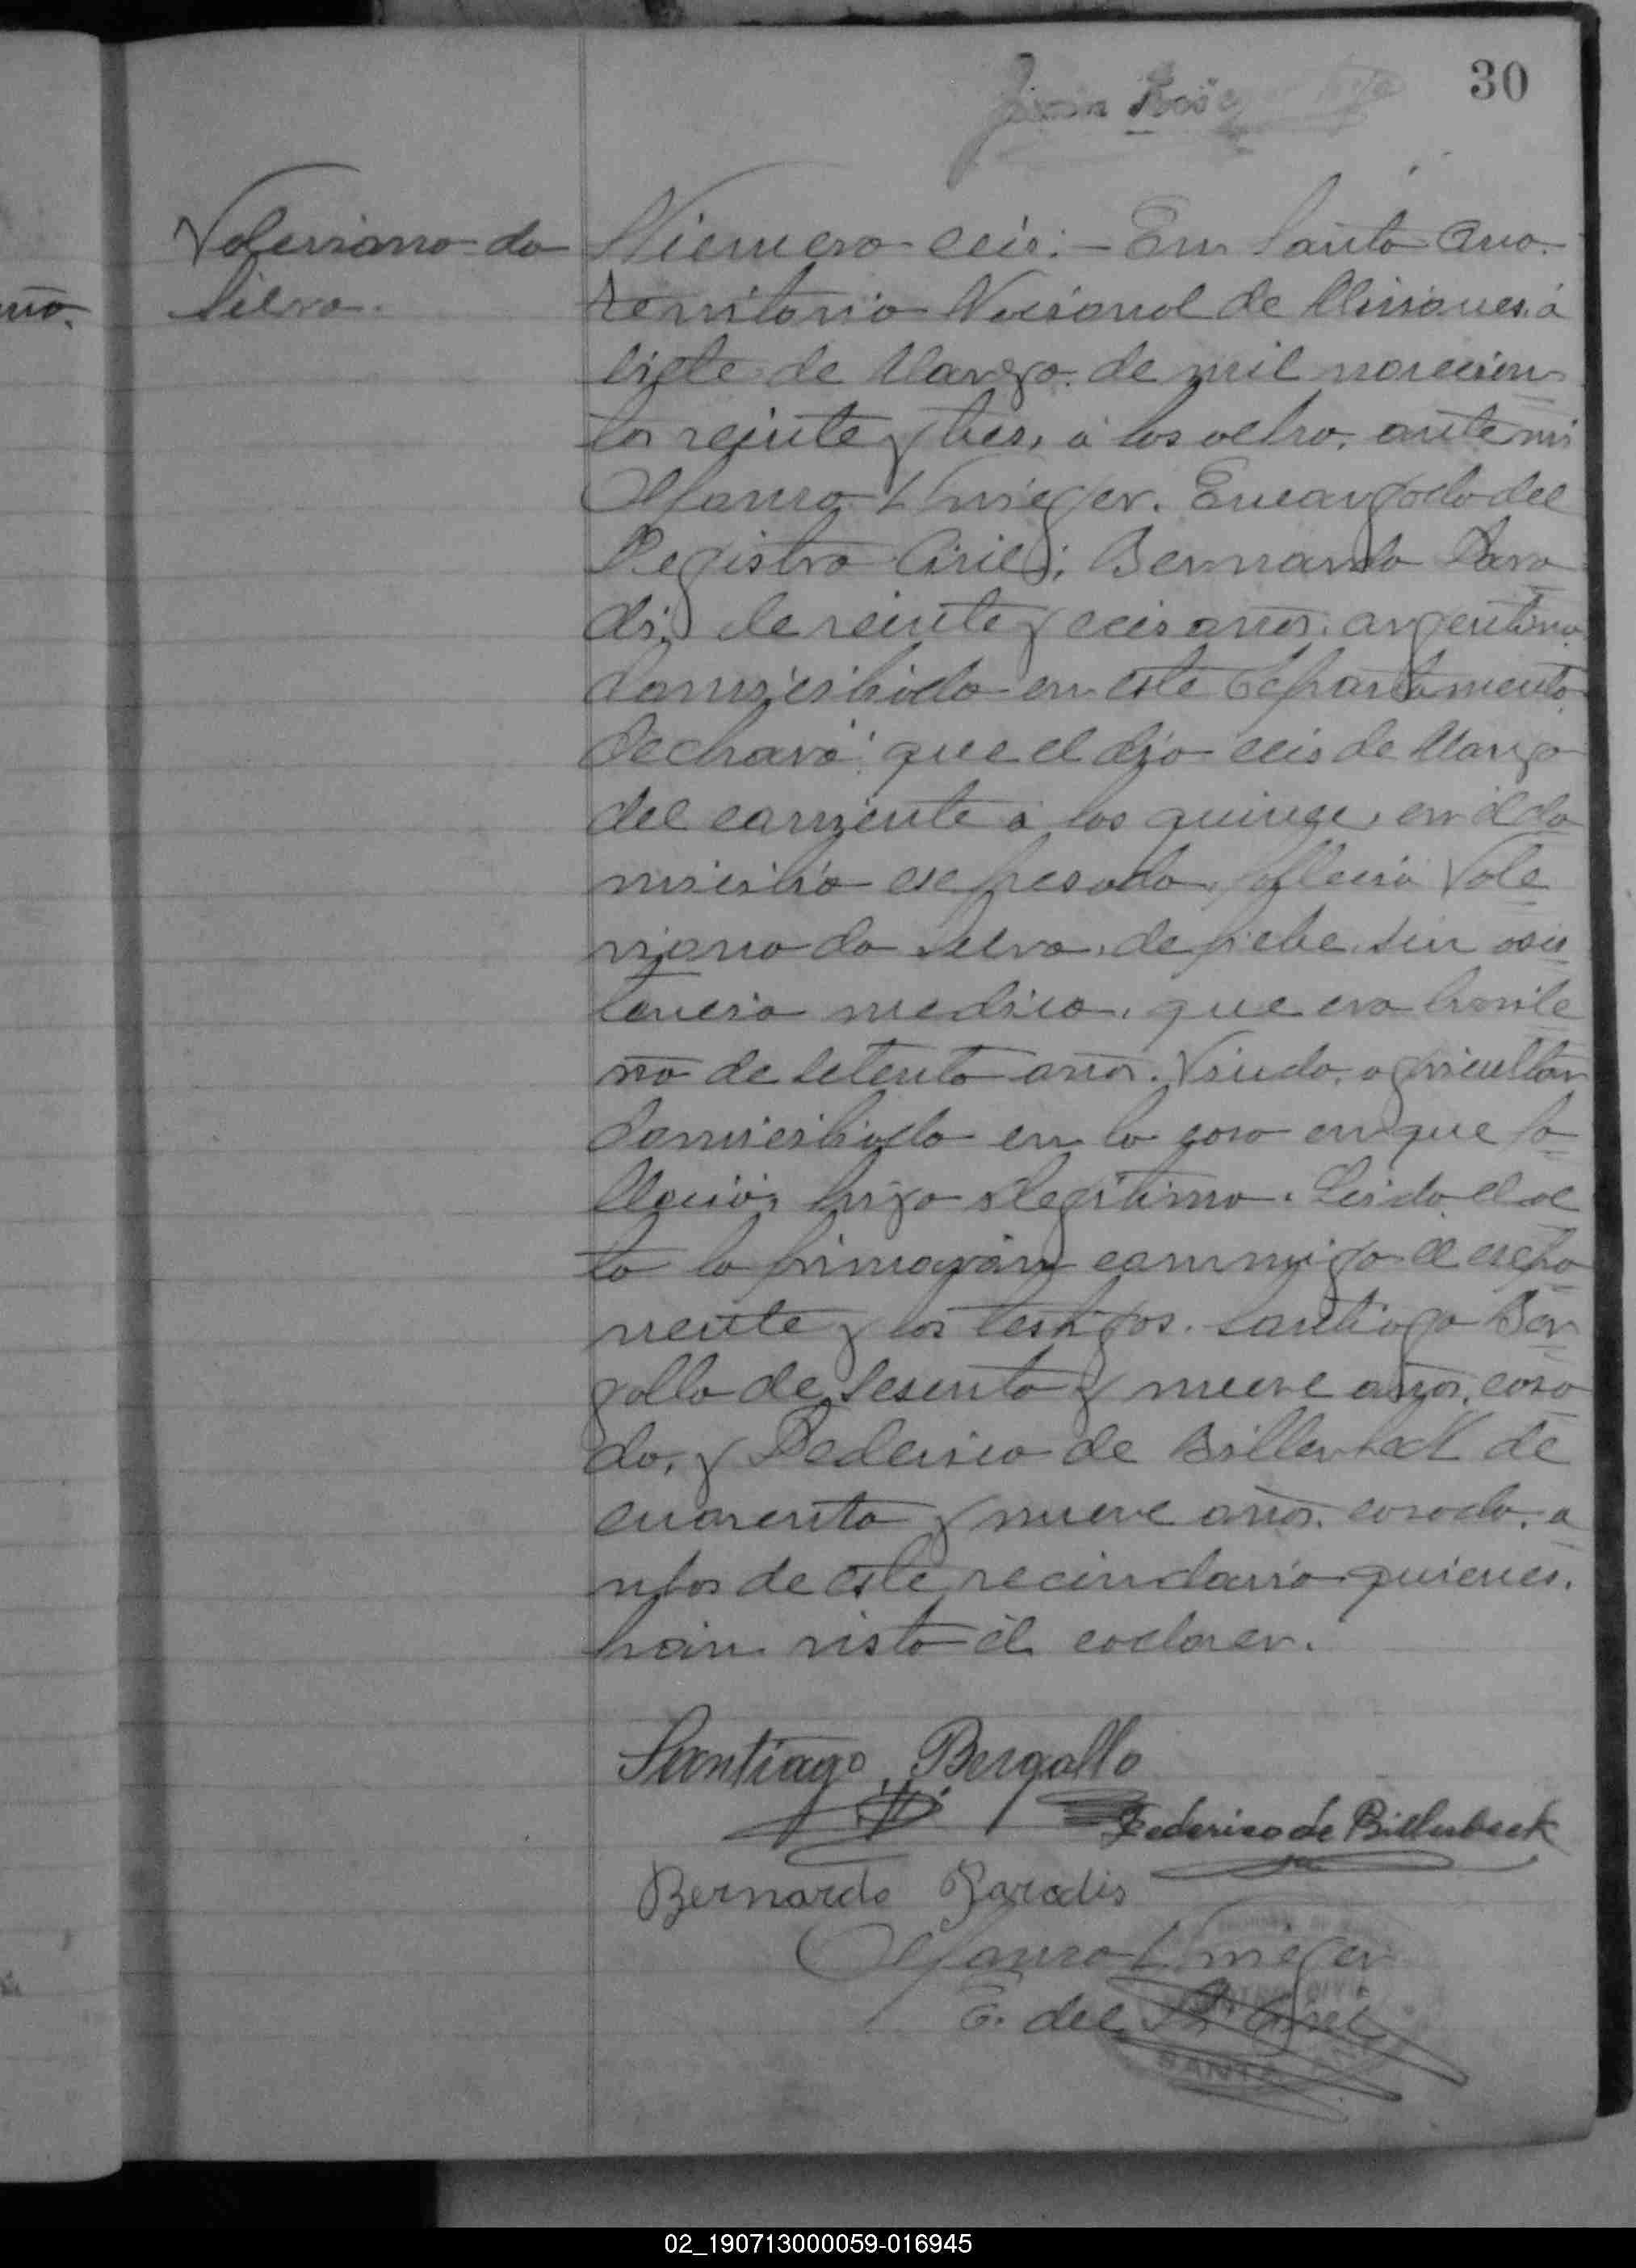 30
Juan José
Valeriano da
Silva.
Número seis: - En Santa Ana.
Territorio Nacional de Misiones, á
siete de Marzo de mil novecien
tos veinte y tres, á las ocho, ante mi
Alfonso Krieger. Encargado del
Registro Civil; Bernardo Para
dis, de veinte y seis años, argentino
domiciliado en este Departamento.
Declaró: que el día seis de Marzo
del corriente á las quince, en el do
micilio expresado, falleció Vale
riano da Silva, de fiebe, sin asis
tencia medica, que era brasile
ño de setenta años, Viudo, agricultor
domiciliado en la casa en que fa
lleció, hijo ilegitimo. Leida el ac
ta la firmaron conmigo el expo
nente y los testigos. Santiago Ber
gallo de sesenta y nueve años, casa
do, y Federico de Billerbeck de
cuarenta y nueve años, casado, a
mbos de este vecindario quienes
han visto el cadaver.
Santiago Bergallo
Federico de Billerbeck
Bernardo Paradis
Alfonso Krieger
E. del R. Civil
SANTA
02_190713000059-016945